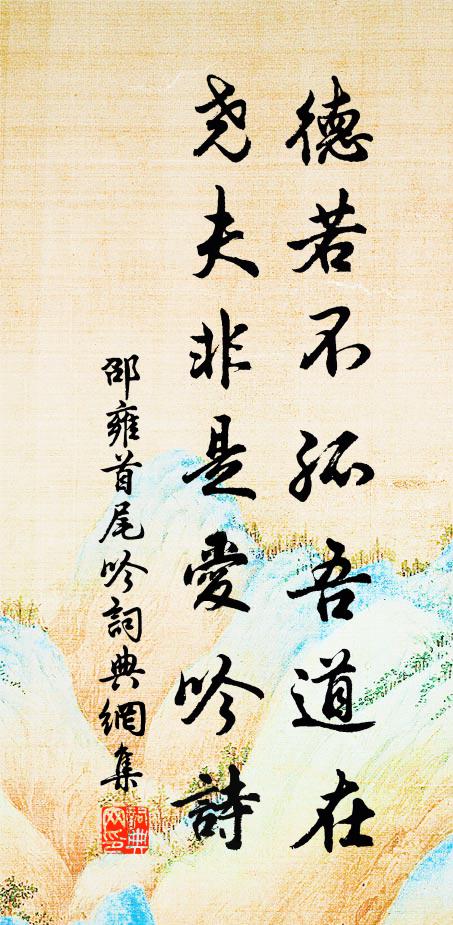 德若不孤吾道在
尧夫非是愛吟詩
邵雍首尾吟詞典網集
詞典
网印